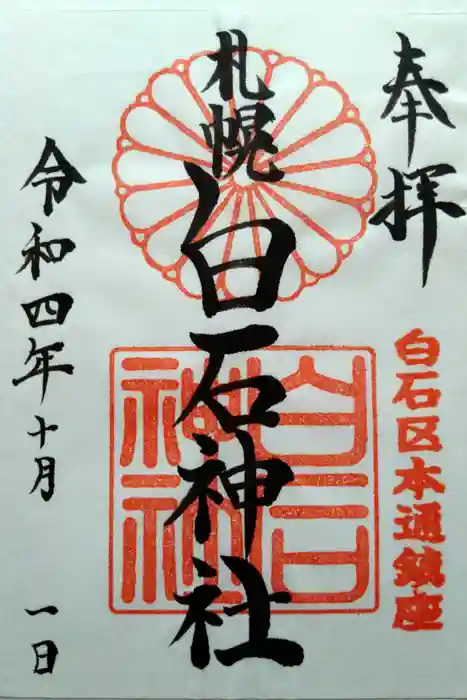 奉拝
白石区本通鎮座
札幌
白石神社
白石神社
令和四年十月 一日